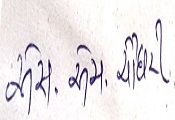 એમ. એમ. ચૌધરી